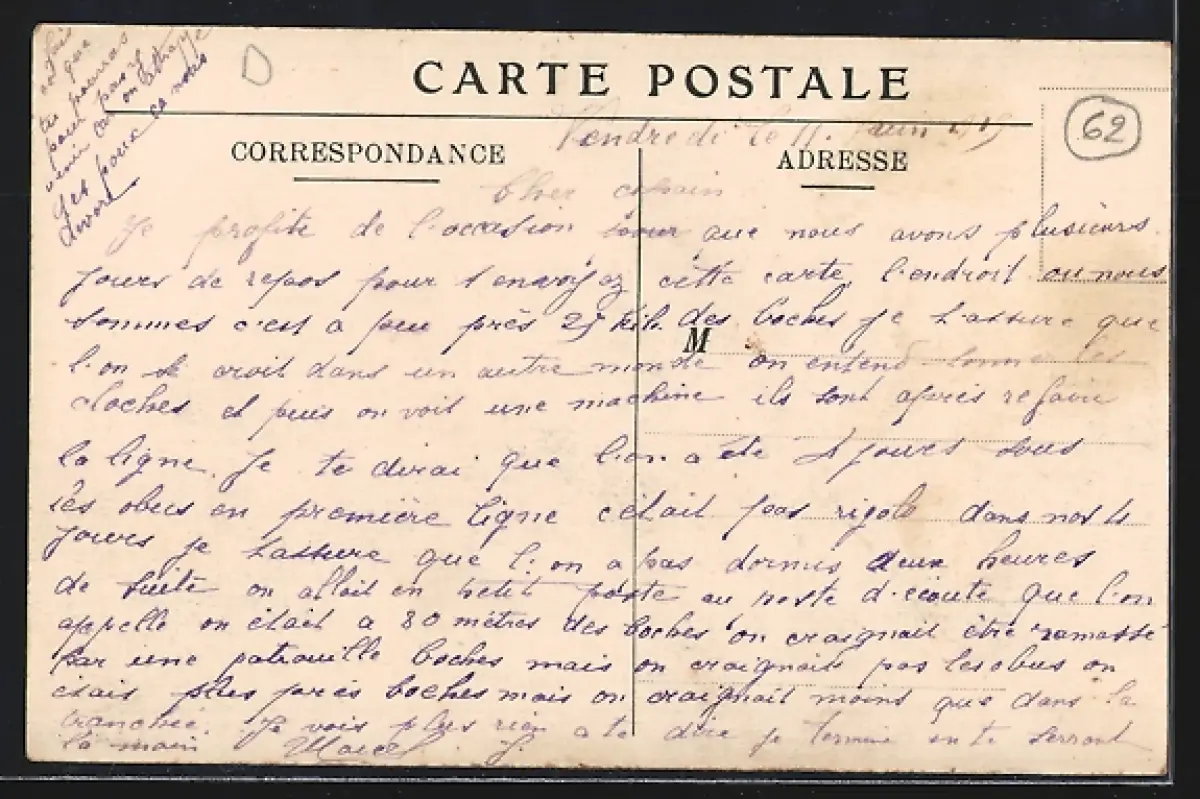 CARTE POSTALE
62
Vendredi le 11. Juin 1915
CORRESPONDANCE
ADRESSE
Cher cousin
Je profite de l'occasion que nous avons plusieurs
jours de repos pour t'envoyez cette carte, l'endroit ou nous
sommes c'est a peu près 25 kil. des boches je t'assure que
M
l'on se croit dans un autre monde on entend sonne les
cloches et puis on voit une machine ils sont après refaire
la ligne. Je te dirai que l'on a été 4 jours sous
les obus en première ligne c'était pas rigolo dans nos 4
jours je t'assure que l'on a pas dormis deux heures
de suite on allait en petit poste au poste d'écoute que l'on
appelle on était a 80 mètres des boches on craignait être ramassé
par une patrouille boches mais on craignais pas les obus on
étais plus près boches mais on craignait moins que dans la
tranchée. Je vois plus rien a te dire je termine en te serrant
la main Marcel J.
fait
que
tu pourras
pour pas y
venir car on
des ça nous